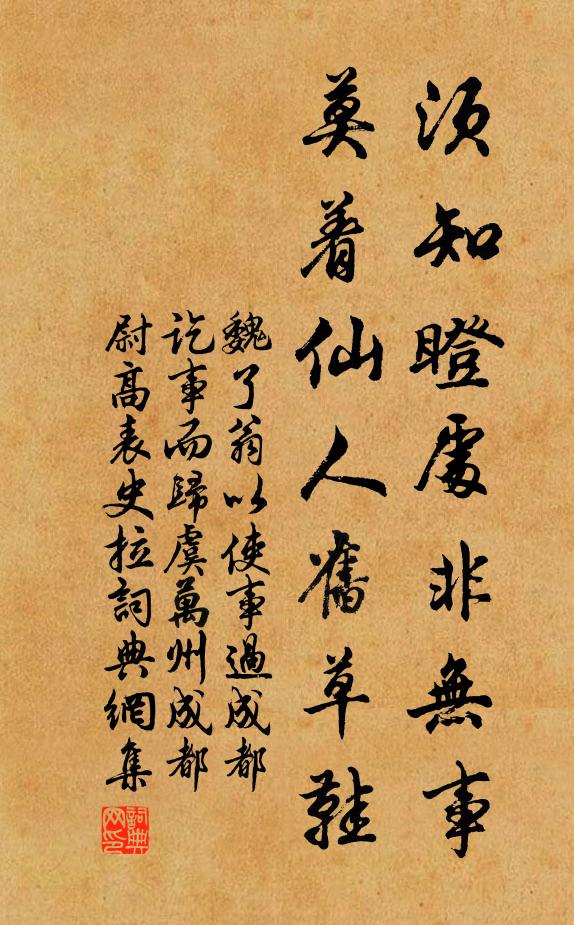 須知瞪處非無事
莫着仙人舊草鞋
魏了翁以使事過成都
訖事而歸虞萬州成都
尉高表史拉詞典網集
詞典網印